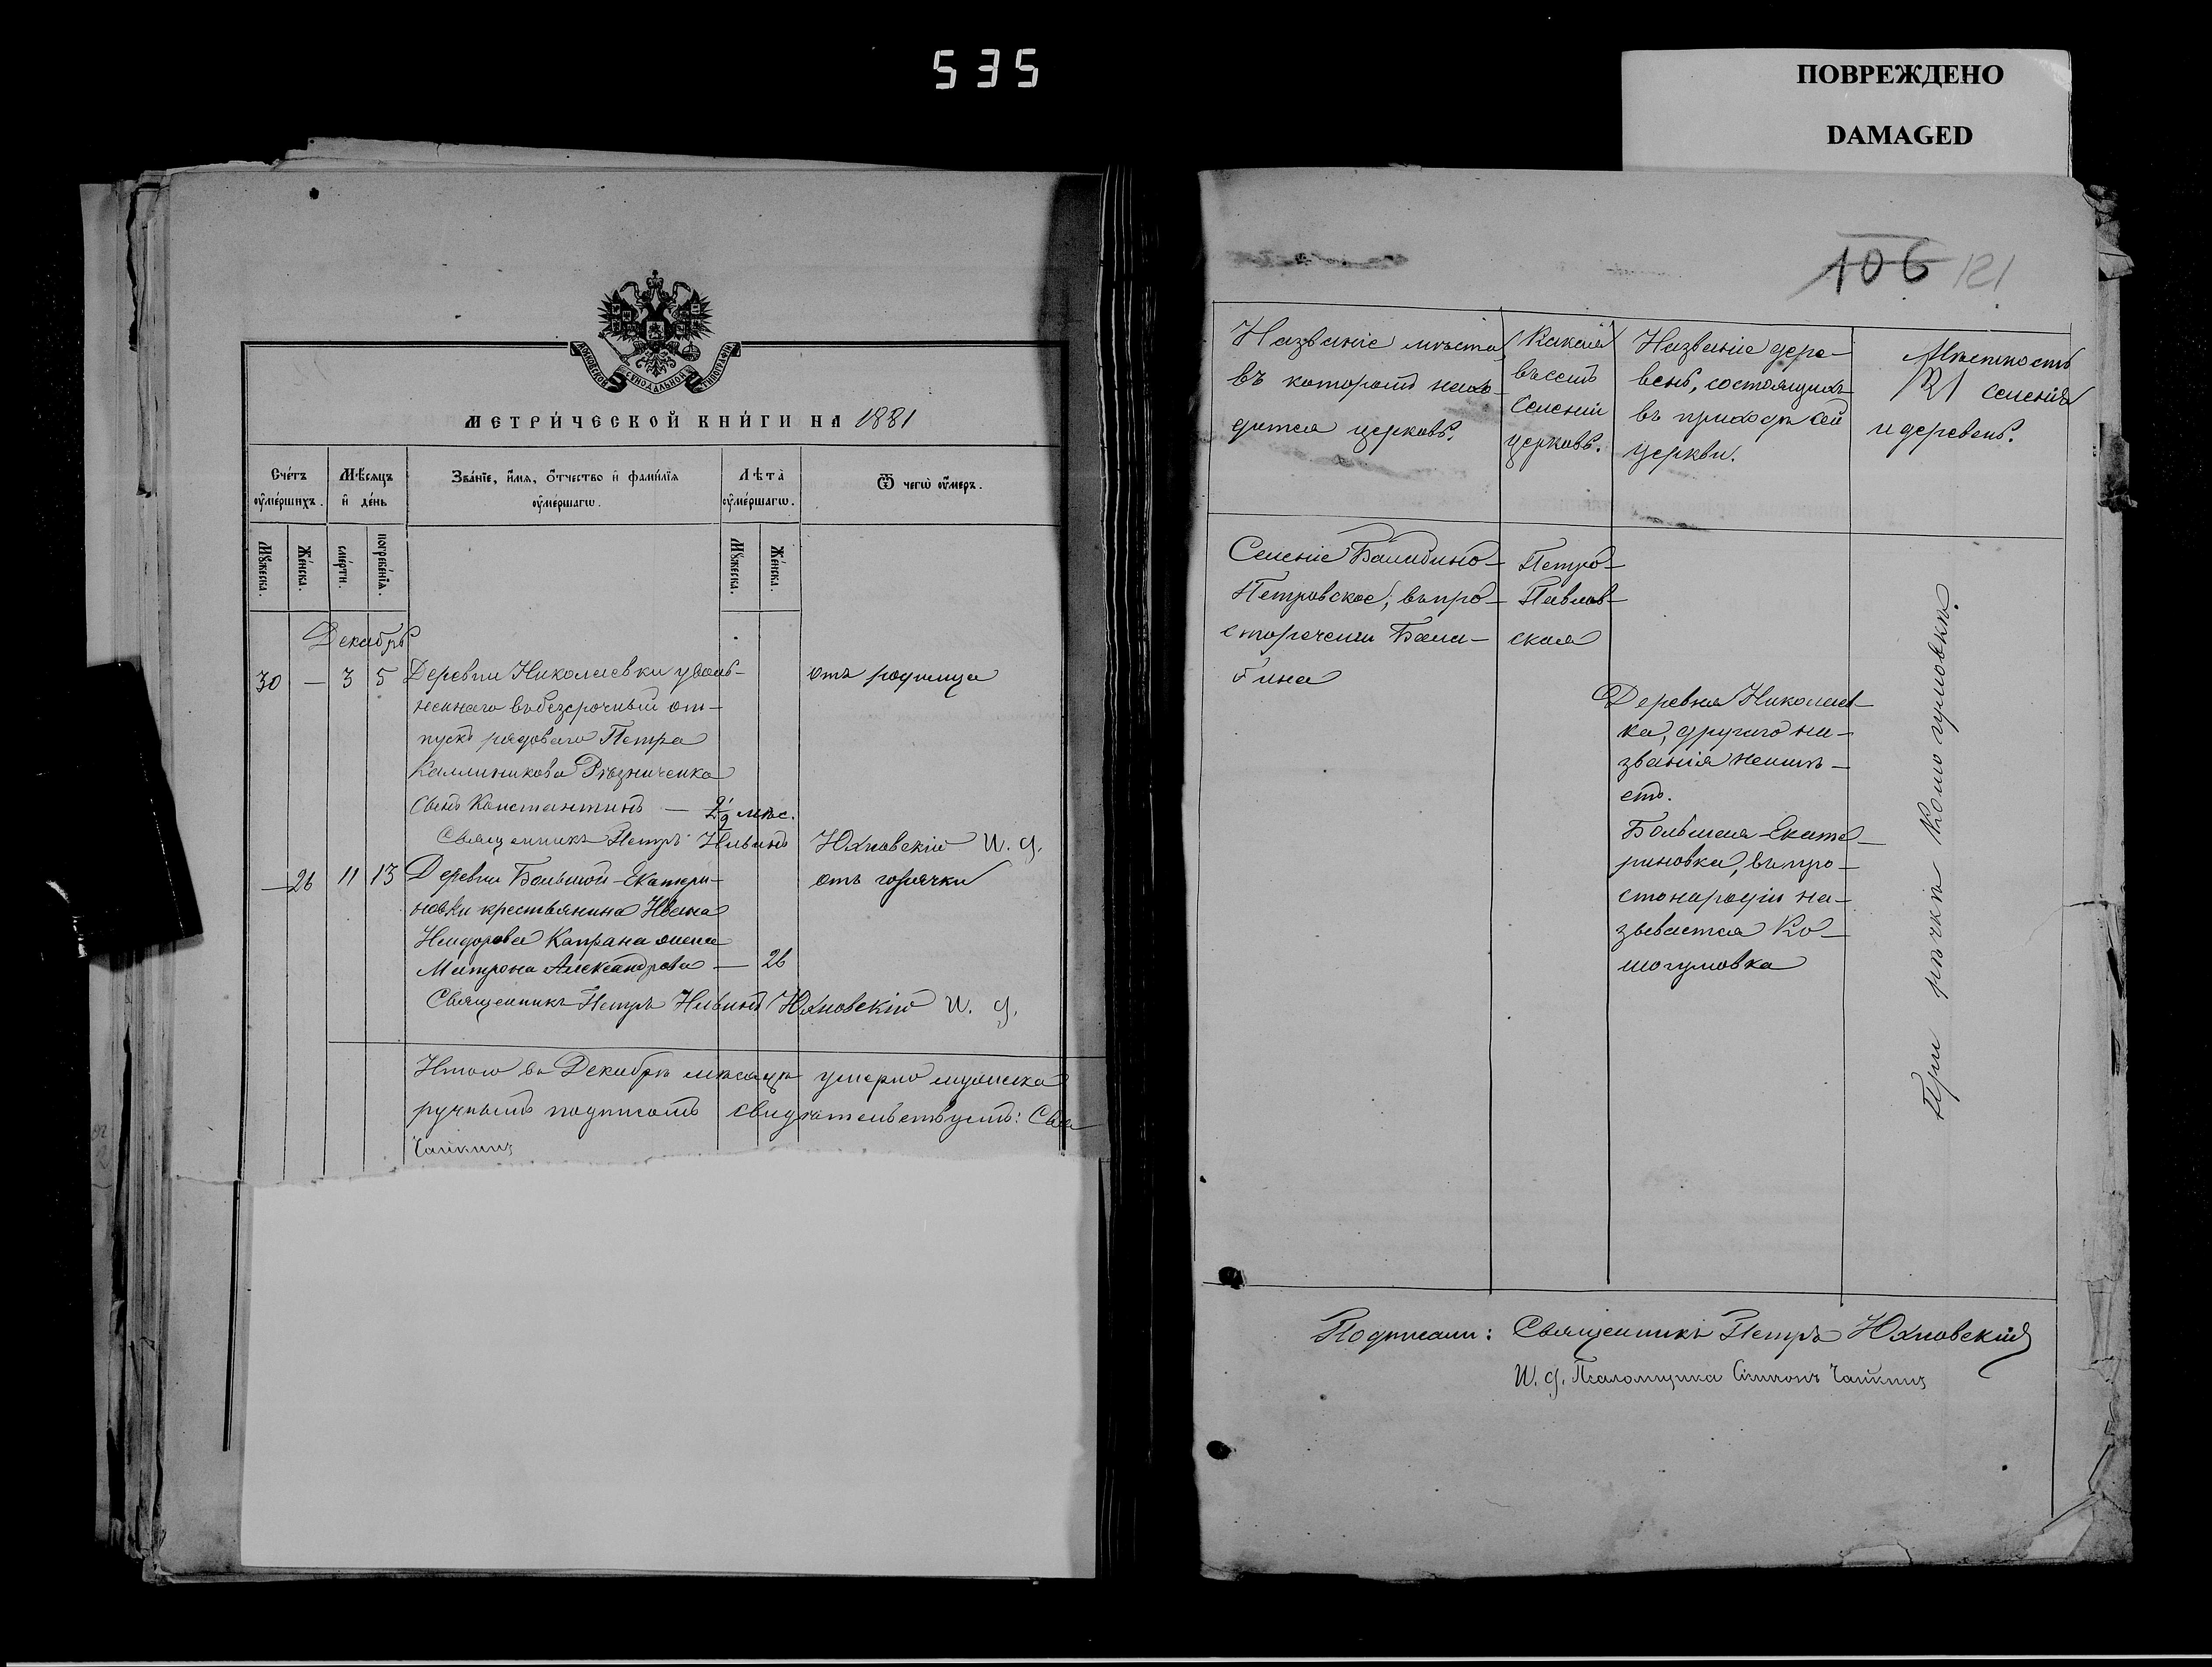 535
ПОВРЕЖДЕНО
DAMAGED
МОСКОВСКОЙ СѴНОДАЛЬНОЙ ТИПОГРАФІИ
МЕТРИ́ЧЕСКОЙ КНИ́ГИ НА 1881
Сче́тъ ᲂу҆ме́ршихъ.
Мѣ́сяцъ и҆ де́нь
Зва́нїе, и҆́мя, ѻ҆́тчество и҆ фами́лїя ᲂу҆ме́ршагѡ.
Лѣ́та ᲂу҆ме́ршагѡ.
Ѿ чегѡ̀ ᲂу҆́меръ.
Мꙋ́жеска.
Же́нска.
сме́рти.
погребе́нїя.
Мꙋ́жеска.
Же́нска.
Декабрь
30 — 3 5 Деревни Николаевки уволь- отъ родимца
неннаго въ безсрочный от-
пускъ рядоваго Петра
Каллиникова Рѣзниченка
сынъ Константинъ — 2 1/2 мѣс.
Священникъ Петръ Ильинъ Юхновскій И. д.
— 26 11 13 Деревни Большой-Екатери- отъ горячки
новки крестьянина Ивана
Исидорова Капрана жена
Матрона Александрова — 26
Священникъ Петръ Ильинъ Юхновскій И. д.
Итого въ Декабрѣ мѣсяцѣ умерло мужеска
ручнымъ подписомъ свидѣтельствуемъ: Свя
Чайкинъ
106 121
Названіе мѣста
въ которомъ нахо-
дится церковь.
Какая
въ семъ
селеніи
церковь.
Названіе дере-
вень, состоящихъ
въ приходѣ сей
церкви.
Мѣстность
121 селенія
и деревень.
Селеніе Балабино-
Петровское, въ про-
сторечіи Бала-
бина
Петро-
Павлов-
ская
Деревня Николаев-
ка, другаго на-
званія неимѣ-
етъ.
Большая-Екате-
риновка, въ про-
стонародіи на-
зывается Ко-
шогумовка
При рѣчкѣ Кошогумовкѣ.
Подписали: Священникъ Петръ Юхновскій
И. д. Псаломщика Симонъ Чайкинъ